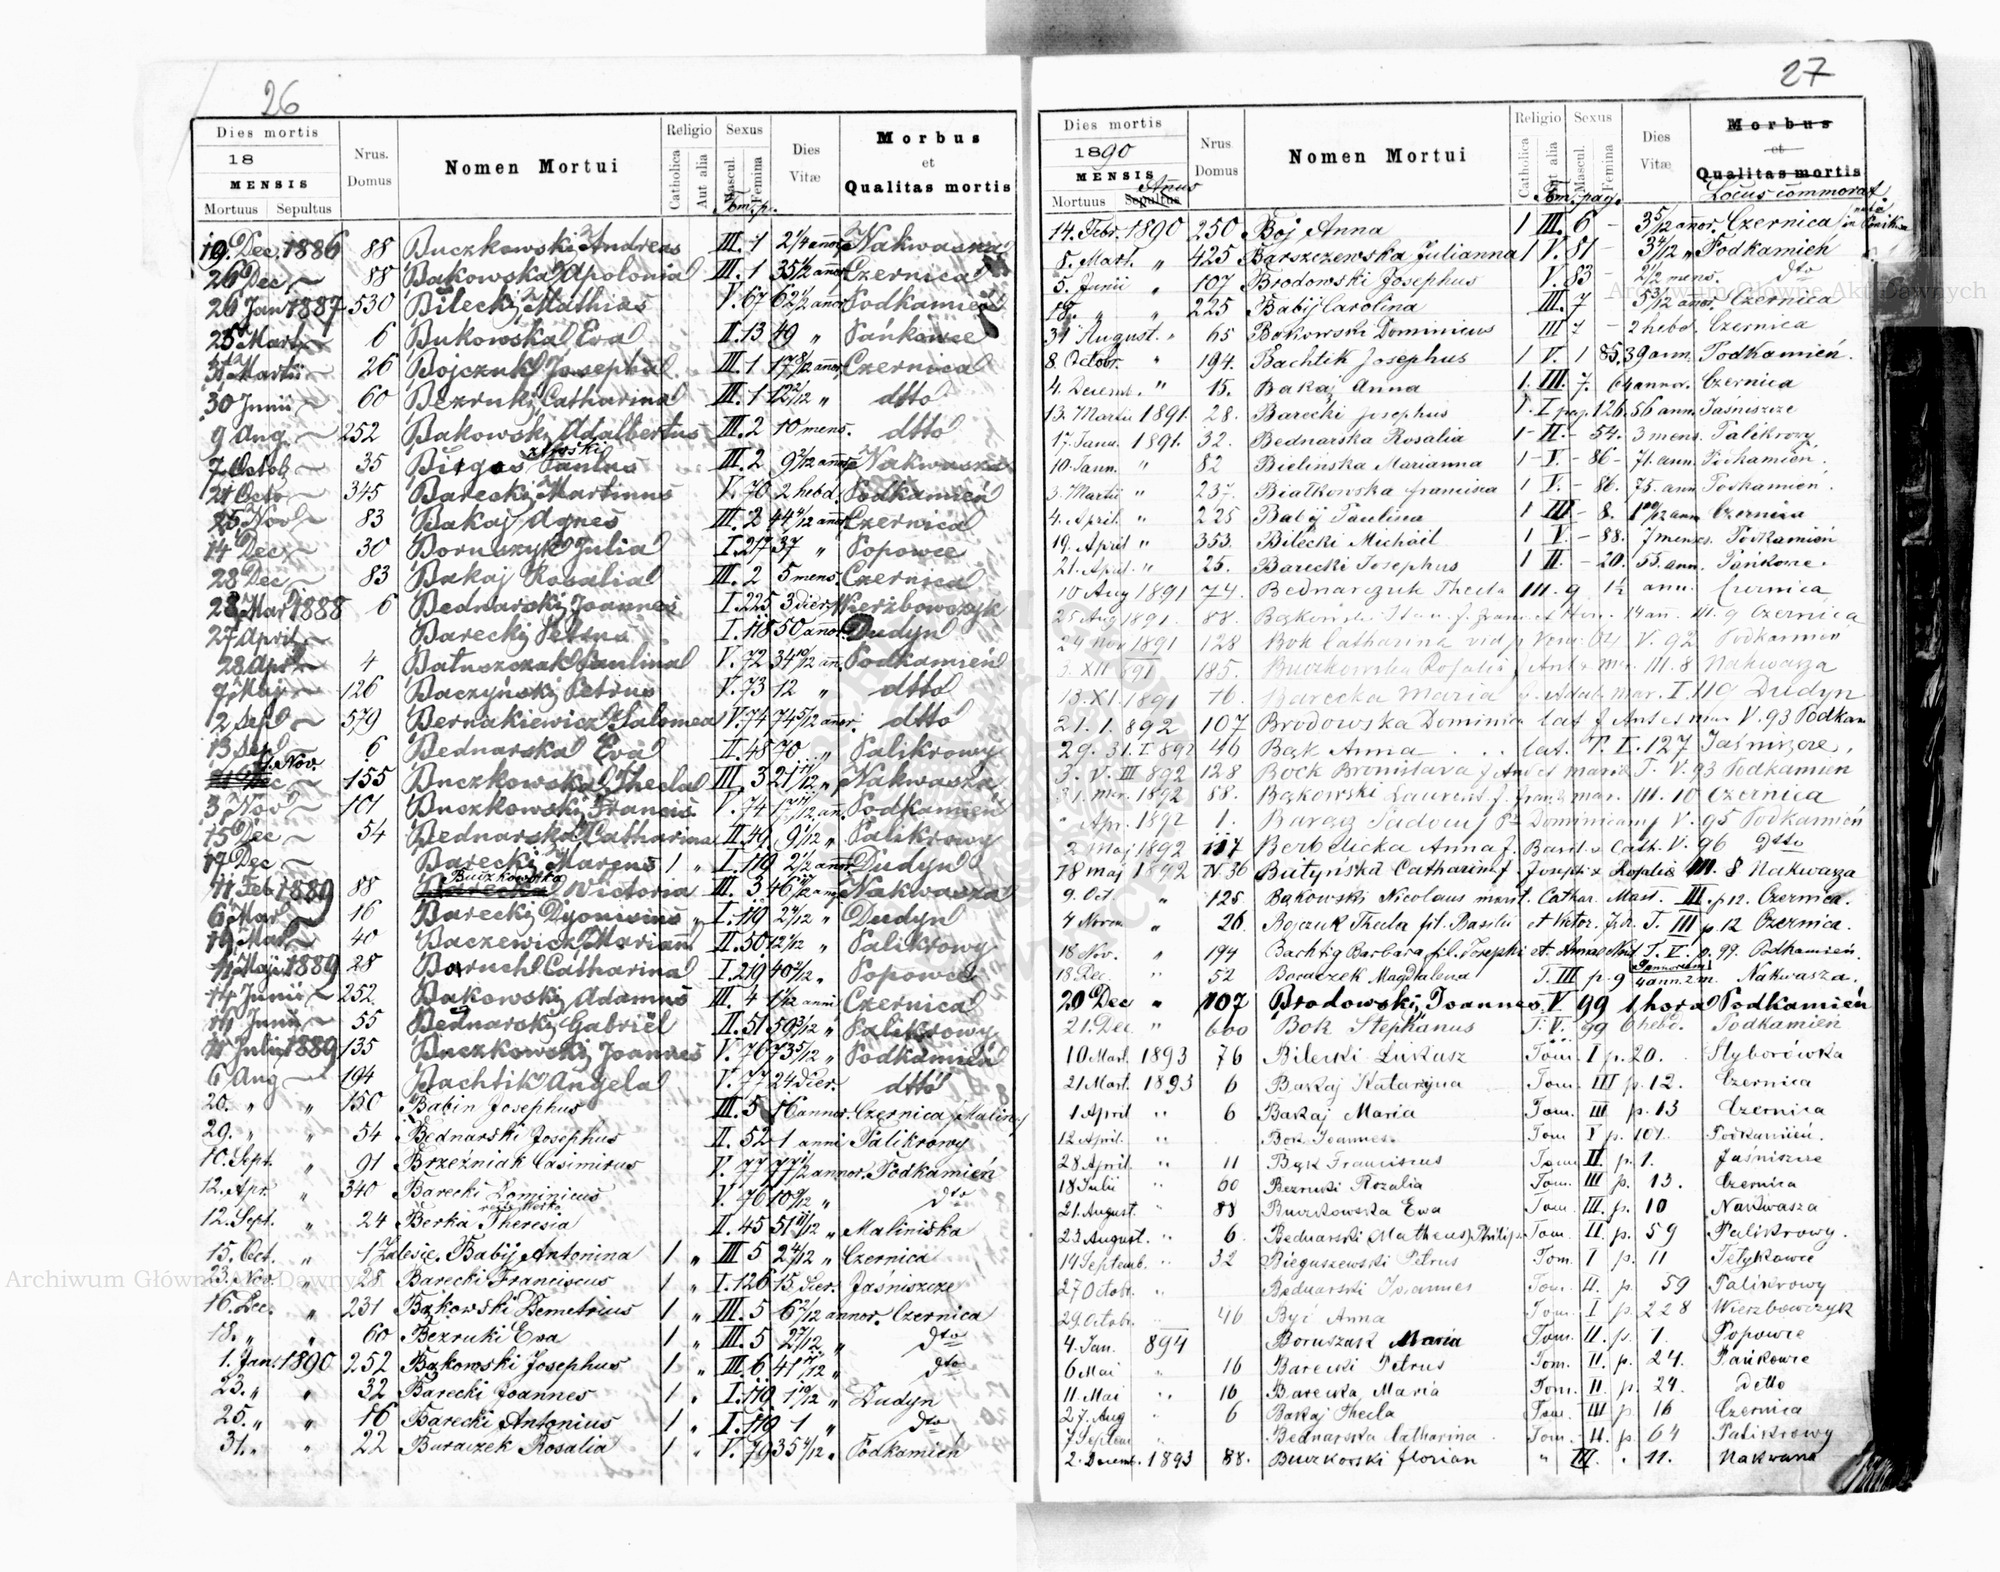 26
Dies mortis
18
MENSIS
Mortuus Sepultus
Nrus. Domus
Nomen Mortui
Religio
Catholica
Aut alia
Sexus
Mascul.
Femina
Tom. p.
Dies Vitæ
Morbus
et
Qualitas mortis
19. Dec. 1886 88 Buczkowski Andreas III. 1 2 1/4 annor Nakwasza
26 Dec 88 Bakowska Apolonia III. 1 35 1/2 annor Czernica
26 Jan 1887 530 Bilecki Mathias V. 67 62 1/2 annor Podkamień
25 Mart 6 Bukowska Eva II. 13 49 " Pańkowce
31 Martii 26 Bojczuk Josepha III. 1 17 8/12 annor Czernica
30 Junii 60 Bezruki Catharina III. 1 12 2/12 " dtto
9 Aug 252 Bakowski Adalbertus III. 2 10 mens. dtto
7 Octob 35 Birgas Paulus III. 2 9 2/12 annor Nakwasza
21 Octo 345 Barecki Martinus V. 70 2 hebd. Podkamień
25 Nov 83 Bakaj Agnes III. 2 44 4/12 annor Czernica
14 Dec 30 Boruszyk Julia I. 217 37 " Popowce
28 Dec 83 Bakaj Rosalia III. 2 5 mens Czernica
28 Mar 1888 6 Bednarski Joannes I. 225 3 dier Wierzbowczyk
27 April Barecki Petrus I. 118 50 annor Dudyn
28 Apr 4 Batuszczak Paulina V. 72 34 10/12 ann Podkamień
7 Maj 126 Baczyński Petrus V. 73 12 " dtto
2 Sept 579 Bernakiewicz Salomea V. 74 74 5/12 annor. dtto
13 Sept 6 Bednarska Eva II. 48 70 " Palikrowy
1. Nov 155 Buczkowska Thecla III. 3 21 11/12 " Nakwasza
3 Nov 101 Buczkowski Francis V. 74 1 7/12 ann Podkamień
15 Dec 54 Bednarska Catharina II. 49 9 1/12 " Palikrowy
17 Dec Barecki Marcus 1 " I. 119 2 1/2 annor Dudyn
11 Feb 1889 88 Buczkowska Victoria III. 3 46 Nakwasza
6 Mar 16 Barecki Dyonisius " I. 119 2 4/12 " Dudyn
19 Mar 40 Baczewicz Mariann II. 50 12 1/12 " Palikrowy
11 Maji 1889 28 Baruch Catharina I. 219 40 2/12 " Popowce
14 Junii 252 Bakowski Adamus III. 4 1 1/12 anni Czernica
14 Junii 55 Bednarski Gabriel II. 51 59 3/12 " Palikrowy
11 Julii 1889 135 Buczkowski Joannes V. 76 73 5/12 " Podkamień
6 Aug 194 Bachtik Angela V. 77 24 dier. dtto
20. " " 150 Babin Josephus III. 5 16 annor. Czernica
29. " " 54 Bednarski Josephus II. 52 1 anni Palikrowy
10. Sept. " 91 Brzeźniak Casimirus V. 77 annor. Podkamień
12. Apr. " 340 Barecki Dominicus V. 76 10 9/12 " dto
12. Sept. " 24 Berka Theresia II. 45 51 11/12 " Maliniska
15. Oct. " 1 Zalesie. Babij Antonina 1 " III 5 2 4/12 " Czernica
23. Nov. " 28 Barecki Franciscus 1 " I. 126 15 Dier. Jaśniszcze
16. Dec. " 231 Bąkowski Demetrius 1 " III. 5 6 2/12 annor. Czernica
18. " " 60 Bezruki Ewa 1 " III. 5 2 7/12 " dto
1. Jan. 1890 252 Bąkowski Josephus 1 " III. 6 41 11/12 " dto
23. " " 32 Barecki Joannes 1 " I. 119 1 10/12 " Dudyn
25. " " 16 Barecki Antonius 1 " I. 119 1 " dto
31. " " 22 Buraczek Rosalia 1 " V. 79 35 4/12 " Podkamień
27
Dies mortis
1890
MENSIS
Annus
Mortuus Sepultus
Nrus Domus
Nomen Mortui
Religio
Catholica
Aut alia
Sexus
Mascul.
Femina
Tom. pag.
Dies Vitæ
Morbus
et
Qualitas mortis
Locus commorat
14. Febr. 1890 250 Boj Anna 1 III. 6 - 3 5/12 anor. Czernica
8. Mart. " 425 Barszczewska Julianna 1 V. 81 - 3 4/12 " Podkamień
5. Junii " 107 Brodowski Josephus V. 83 - 2 1/2 mens. dto
18. " " 225 Babij Carolina III. 7 5 3/12 anor. Czernica
31 August. " 65 Bąkowski Dominicus III 7 - 2 hebd. Czernica
8. Octobr. " 194. Bachtik Josephus 1 V. 1 85. 39 ann. Podkamień.
4. Decemb. " 15. Bakaj Anna 1. III. 7. 64 annor. Czernica
13. Martii 1891. 28. Barecki Josephus 1. I pag. 126. 56 ann. Jaśniszcze
17. Janu. 1891. 32. Bednarska Rosalia 1 - II. - 54. 3 mens. Palikrowy
10. Jann. " 82 Bielinska Marianna 1 - V. - 86 - 71. ann. Podkamień.
3. Martii " 237. Białkowska Francisca 1 V. - 86. 75. ann Podkamień.
4. April. " 225 Babij Paulina 1 III - 8. 1 10/12 ann Czernica
19. April " 353. Bilecki Michail 1 V. - 88. 7 mens. Podkamień
21. April. " 25. Barecki Josephus 1 II - 20. 55. ann. Pańkowce.
10 Aug 1891 74. Bednarczuk Thecla III. 9 1 1/2 ann. Czernica
25 Aug 1891. 88. 14 ann. III. 9 Czernica
24 nov 1891 128 Bok Catharina V. 92 Podkamień
3. XII 891 185. Buczkowska Rosalis III. 8 Nakwasza
13. XI. 1891 76. Barecka Maria I. 119 Dudyn
21. 1. 892 107 Brodowska Dominica lat f. Ant et mar V. 93 Podkam
29. 31. I. 892 46 Bąk Anna . . . lat. T. I. 127 Jaśniszcze.
3. V. III 892 128 Bock Bronislava f And et maria T. V. 93 Podkamień
31. mar. 1892 88. Bąkowski Laurent. f. Franc mar. III. 10 Czernica
" Apr. 1892 1. V. 95 Podkamień
2 Maj 1892 117 Anna f. Basil & Cath. V. 96 dtto
18 maj 1892 N 36 Butyńska Catharina f. Josephi & Rosalie III. 8 Nakwasza
9. Oct " 125 Bąkowski Nicolaus marit. Cathar. Mart. III p 12. Czernica.
4 Novem " 26. Bojczuk Thecla fil. Basilii et Victor. T. III p. 12 Czernica.
18 Nov. " 194 Bachtig Barbara fil. Josephi et Anna T. V. p. 99. Podkamień.
18. Dec. " 52 Boraczek Magdalena T. III p. 9 4 ann. 2 m. Nakwasza.
20 Dec " 107 Brodowski Joannes V 99 1 hora Podkamień
21. Dec " 600 Bok Stephanus T. V. 99 6 hebd. Podkamień
10 Mart. 1893 76 Bilecki Łukasz Tom. I p. 20. Styborówka
21 Mart. 1893 6 Bakaj Katarzyna Tom. III p. 12. Czernica
1 April " 6 Bakaj Maria Tom. III p. 13 Czernica
12 April. " Bok Joannes Tom V p. 101. Podkamień.
28 April " 11 Bąk Franciscus Tom II p. 1. Jaśniszcze
18 Julii " 60 Bezruki Rozalia Tom. III p. 13. Czernica
21. August. " 88 Buczkowska Ewa Tom. III. p. 10 Nakwasza
23 August. " 6. Bednarski (Matheus) Philip Tom. II. p. 59 Palikrowy.
14 Septemb. " 32 Bieguszewski Petrus Tom. I p. 11 Tetylkowce
27 Octobr. " Bednarski Joannes Tom. II. p. 59 Palikrowy
29 Octobr. " 46 Byś Anna Tom. I p. 228 Wierzbowczyk
4. Jan. 894 Boruszak Maria Tom. II. p. 1. Popowce
6 Mai " 16 Barecki Petrus Tom. II. p. 24. Pańkowce
11. Mai " 16 Barecka Maria Tom. II p. 24. detto
27. Aug " 6 Bakaj Thecla Tom. III p. 16 Czernica
7 Septem " Bednarska Catharina Tom. II. p. 64 Palikrowy
2. Decemb. 1893 88. Buczkowski Florian " III. . 11. Nakwasza
Archiwum Główne Akt Dawnych
Archiwum Główne Akt Dawnych